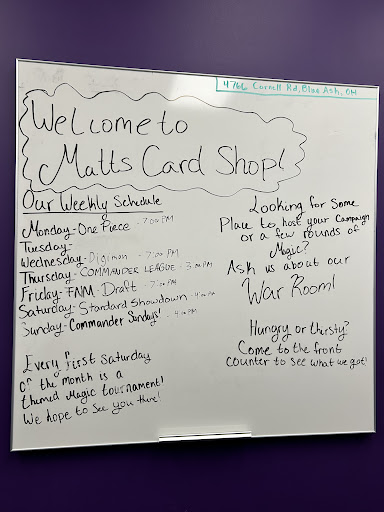 4766 Cornell Rd, Blue Ash, OH
Welcome to
Matts Card Shop!
Our Weekly Schedule
Monday- One Piece - 7:00 PM
Tuesday-
Wednesday- Digimon - 7:00 PM
Thursday- COMMANDER LEAGUE - 3:00 PM
Friday- FNM- Draft - 7:00 PM
Saturday- Standard Showdown - 4:00 PM
Sunday- Commander Sundays! - 4:00 PM
Every first Saturday
of the month is a
themed Magic tournament!
We hope to see you there!
Looking for some
Place to host your Campaign
or a few rounds of
Magic?
Ask us about our
War Room!
Hungry or thirsty?
Come to the front
counter to see what we got!